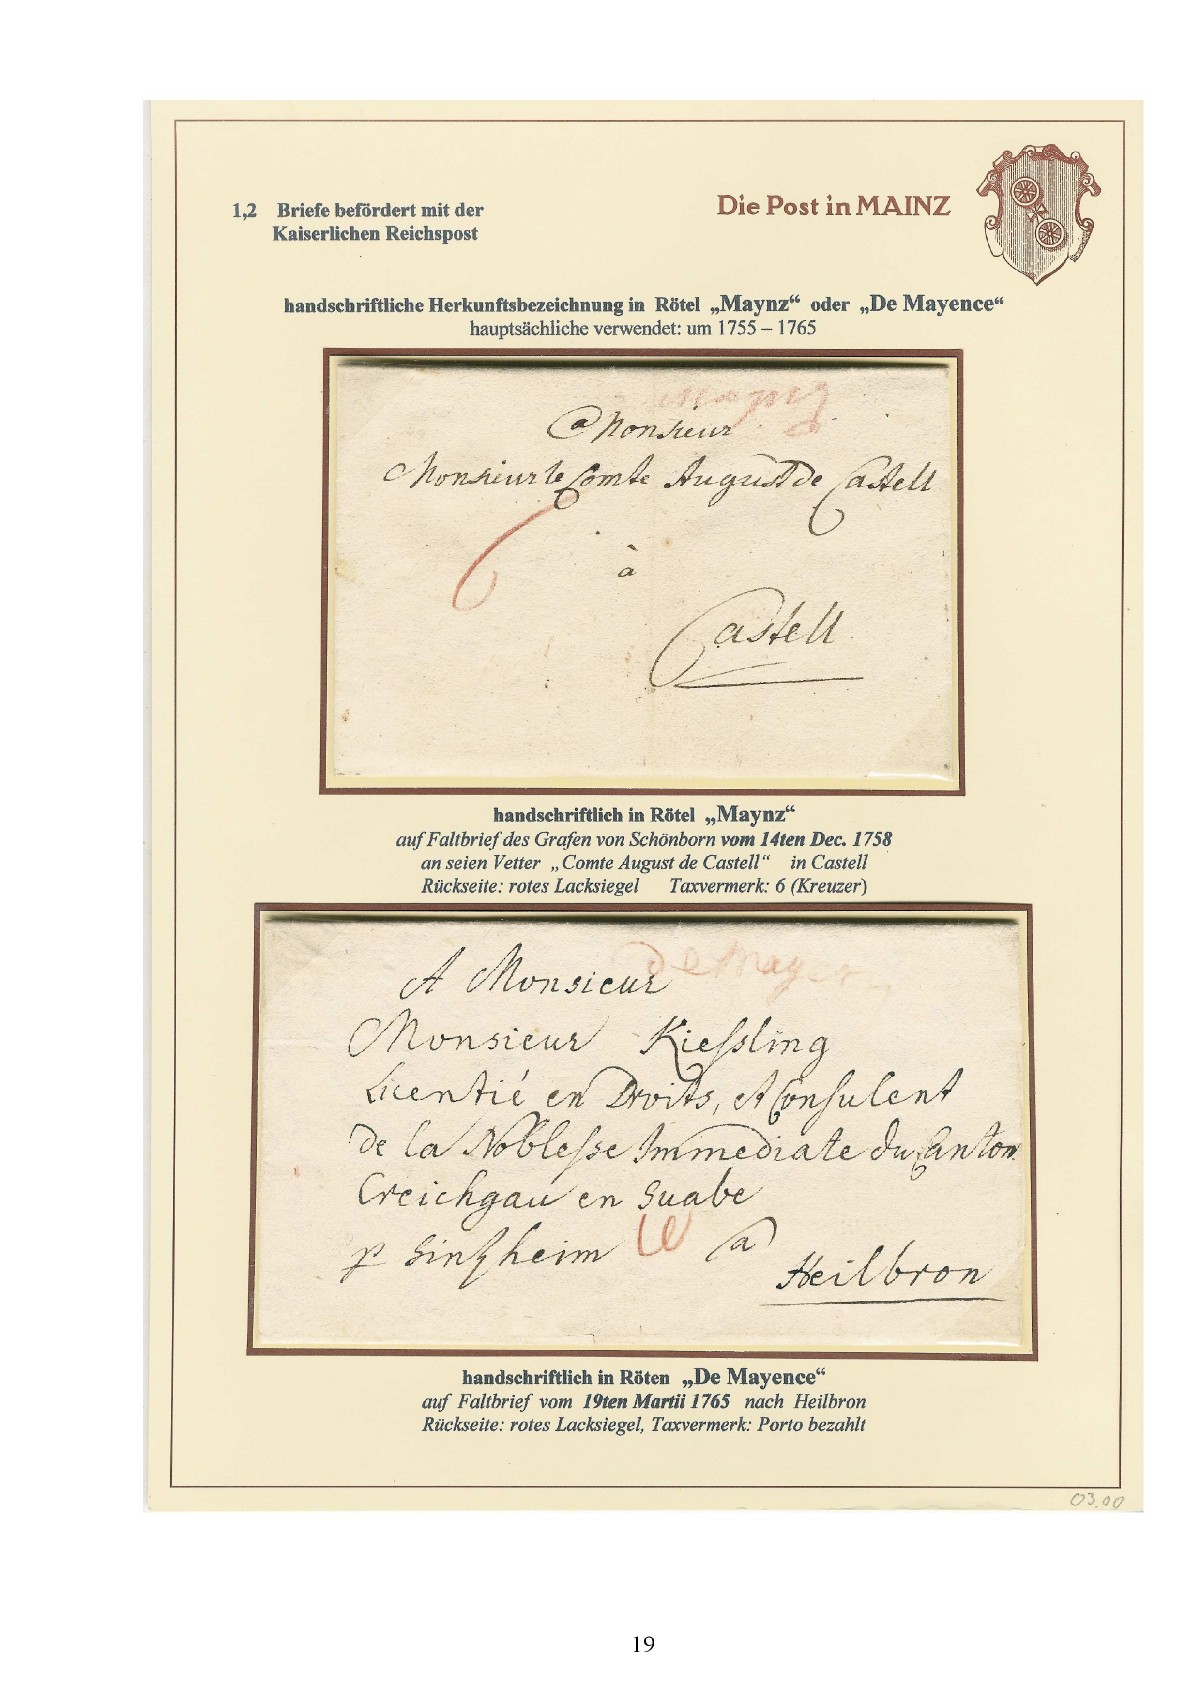 1,2 Briefe befördert mit der
Kaiserlichen Reichspost
Die Post in MAINZ
handschriftliche Herkunftsbezeichnung in Rötel „Maynz“ oder „De Mayence“
hauptsächliche verwendet: um 1755 – 1765
Maynz
A Monsieur
Monsieur le Comte August de Castell
6
à
Castell
handschriftlich in Rötel „Maynz“
auf Faltbrief des Grafen von Schönborn vom 14ten Dec. 1758
an seien Vetter „Comte August de Castell“ in Castell
Rückseite: rotes Lacksiegel Taxvermerk: 6 (Kreuzer)
De May
A Monsieur
Monsieur Kieſsling
Licentié en Droits, et Conſulent
de la Nobleſse Immediate du Canton
Creichgau en Suabe
p Sintzheim a
Heilbron
handschriftlich in Röten „De Mayence“
auf Faltbrief vom 19ten Martii 1765 nach Heilbron
Rückseite: rotes Lacksiegel, Taxvermerk: Porto bezahlt
03.00
19